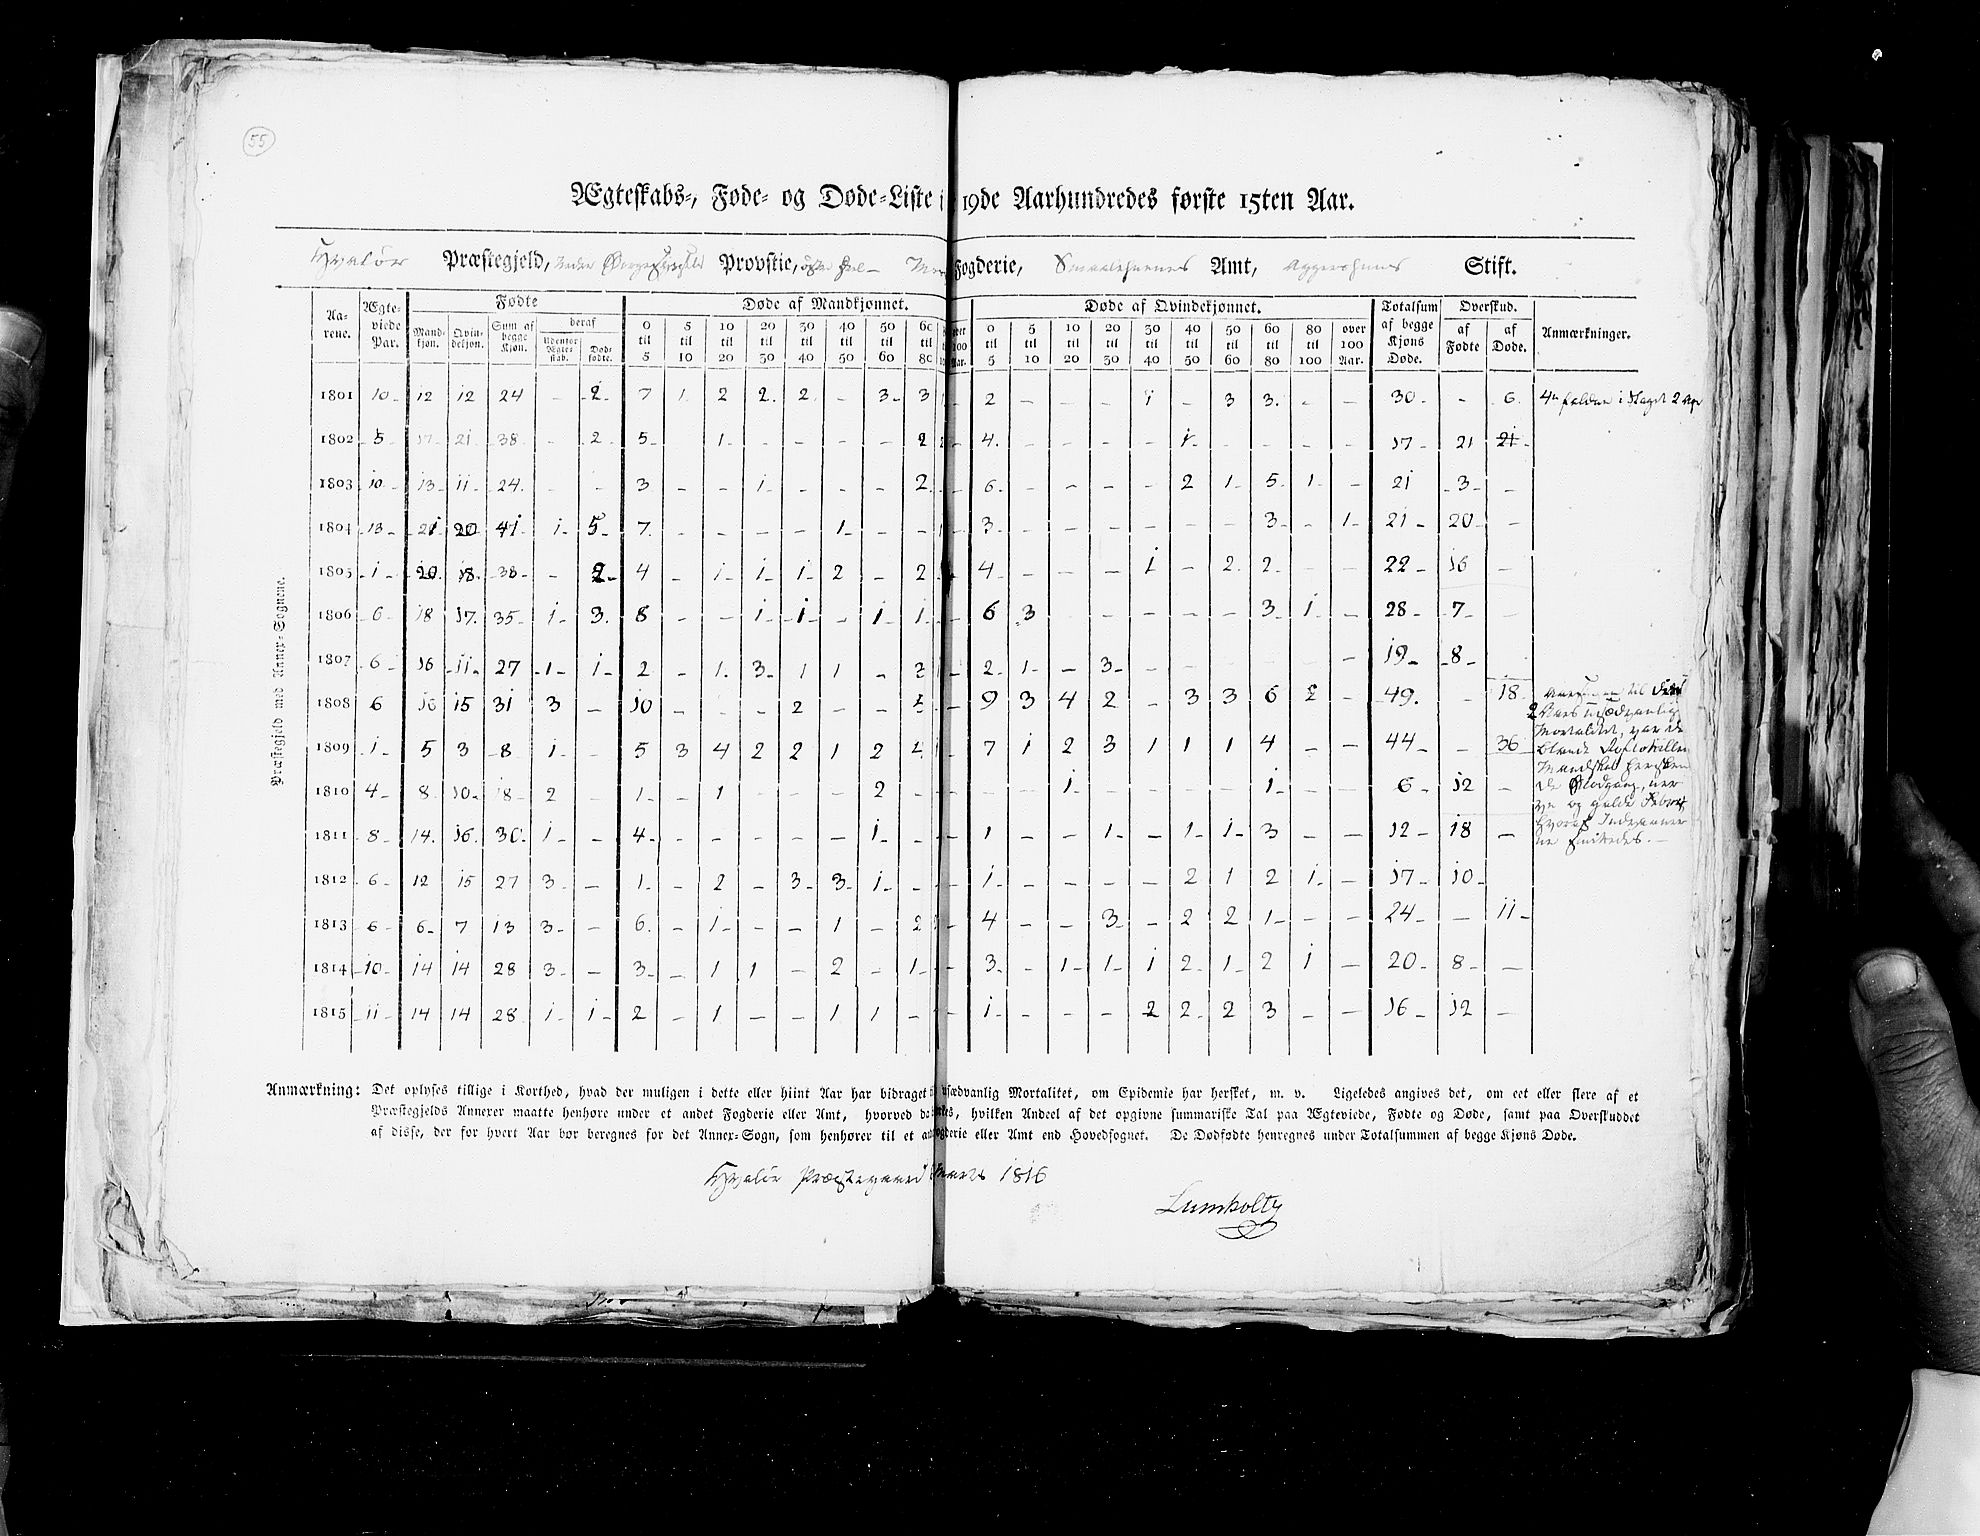 55
Ægteskabs-, Føde- og Døde-Liste i 19de Aarhundredes første 15ten Aar.
Hvaløer Præstegjeld, Provstie, Fogderie, Smaalehnenes Amt, Aggershuus Stift.
Aarene. Ægteviede Par. Fødte Døde af Mandkjønnet. Døde af Qvindekjønnet. Totalsum af begge Kjøns Døde. Overskud. Anmærkninger.
Mandkjøn. Qvindekjøn. Sum af begge Kjøn. deraf Udenfor Ægteskab. Dødfødte. 0 til 5 5 til 10 10 til 20 20 til 30 30 til 40 40 til 50 50 til 60 60 til 80 over 100 Aar. 0 til 5 5 til 10 10 til 20 20 til 30 30 til 40 40 til 50 50 til 60 60 til 80 80 til 100 over 100 Aar. af Fødte af Døde.
Præstegjeld med Annex-Sognene.
1801 10 12 12 24 - 2 7 1 2 2 2 - 3 3 2 - - - 1 - 3 3 - - 30 - 6 4re faldne i Slaget 2 Apr
1802 5 17 21 38 - 2 5 1 - - - - 2 2 4 - - - - 1 - - - - 17 21 21
1803 10 13 11 24 - - 3 - - 1 - - - 2 - 6 - - - - 2 1 5 1 - 21 3 -
1804 13 21 20 41 1 5 7 - - - - 1 - - 1 - 3 - - - - - - 3 - 1 21 20 -
1805 1 20 18 38 - 2 4 - 1 1 1 2 - 2 4 - - - 1 - 2 2 - - 22 16 -
1806 6 18 17 35 1 3 8 - - 1 1 - 1 1 - 6 3 - - - - - 3 1 - 28 7 -
1807 6 16 11 27 1 1 2 - 1 3 1 1 - 3 - 2 1 - 3 - - - - - - 19 8
1808 6 16 15 31 3 - 10 - - - 2 - - 5 9 3 4 2 - 3 3 6 2 - 49 - 18
1809 1 5 3 8 1 - 5 3 4 2 2 1 2 4 - 7 1 2 3 1 1 1 4 - - 44 - 36
1810 4 8 10 18 2 - 1 - 1 - - - 2 - - - - 1 - - - - 1 - - 6 12 -
1811 8 14 16 30 1 - 4 - - - - - 1 - - 1 - - 1 - 1 1 3 - - 12 18 -
1812 6 12 15 27 3 - 1 - 2 - 3 3 1 - - 1 - - - - 2 1 2 1 - 17 10
1813 6 6 7 13 3 - 6 - 1 - - 1 - 2 - 4 - - 3 - 2 2 1 - - 24 - 11
1814 10 14 14 28 3 - 3 - 1 1 - 2 - 1 - 3 - 1 1 1 2 1 2 1 - 20 8 -
1815 11 14 14 28 1 1 2 - 1 - - 1 1 - - 1 - - - 2 2 2 3 - - 16 12 -
til
Aars usædvanlig
Mortalitet, var
blandt
Mandskab
Blodgang,
og gule
Indvaaner
ne smittedes.
Anmærkning: Det oplyses tillige i Korthed, hvad der muligen i dette eller hiint Aar har bidraget usædvanlig Mortalitet, om Epidemie har hersket, m. v. Ligeledes angives det, om eet eller flere af et
Præstegjelds Annexer maatte henhøre under et andet Fogderie eller Amt, hvorved hvilken Andeel af det opgivne summariske Tal paa Ægteviede, Fødte og Døde, samt paa Overskuddet
af disse, der for hvert Aar bør beregnes for det Annex-Sogn, som henhører til et eller Amt end Hovedsognet. De Dødfødte henregnes under Totalsummen af begge Kjøns Døde.
Hvaløer Præstegaard Marts 1816
Lumholtz